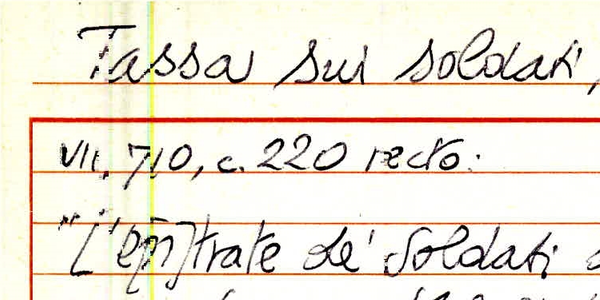 Tassa sui soldati,
VII, 710, c. 220 recto:
"L'e[n]trate de' Soldati